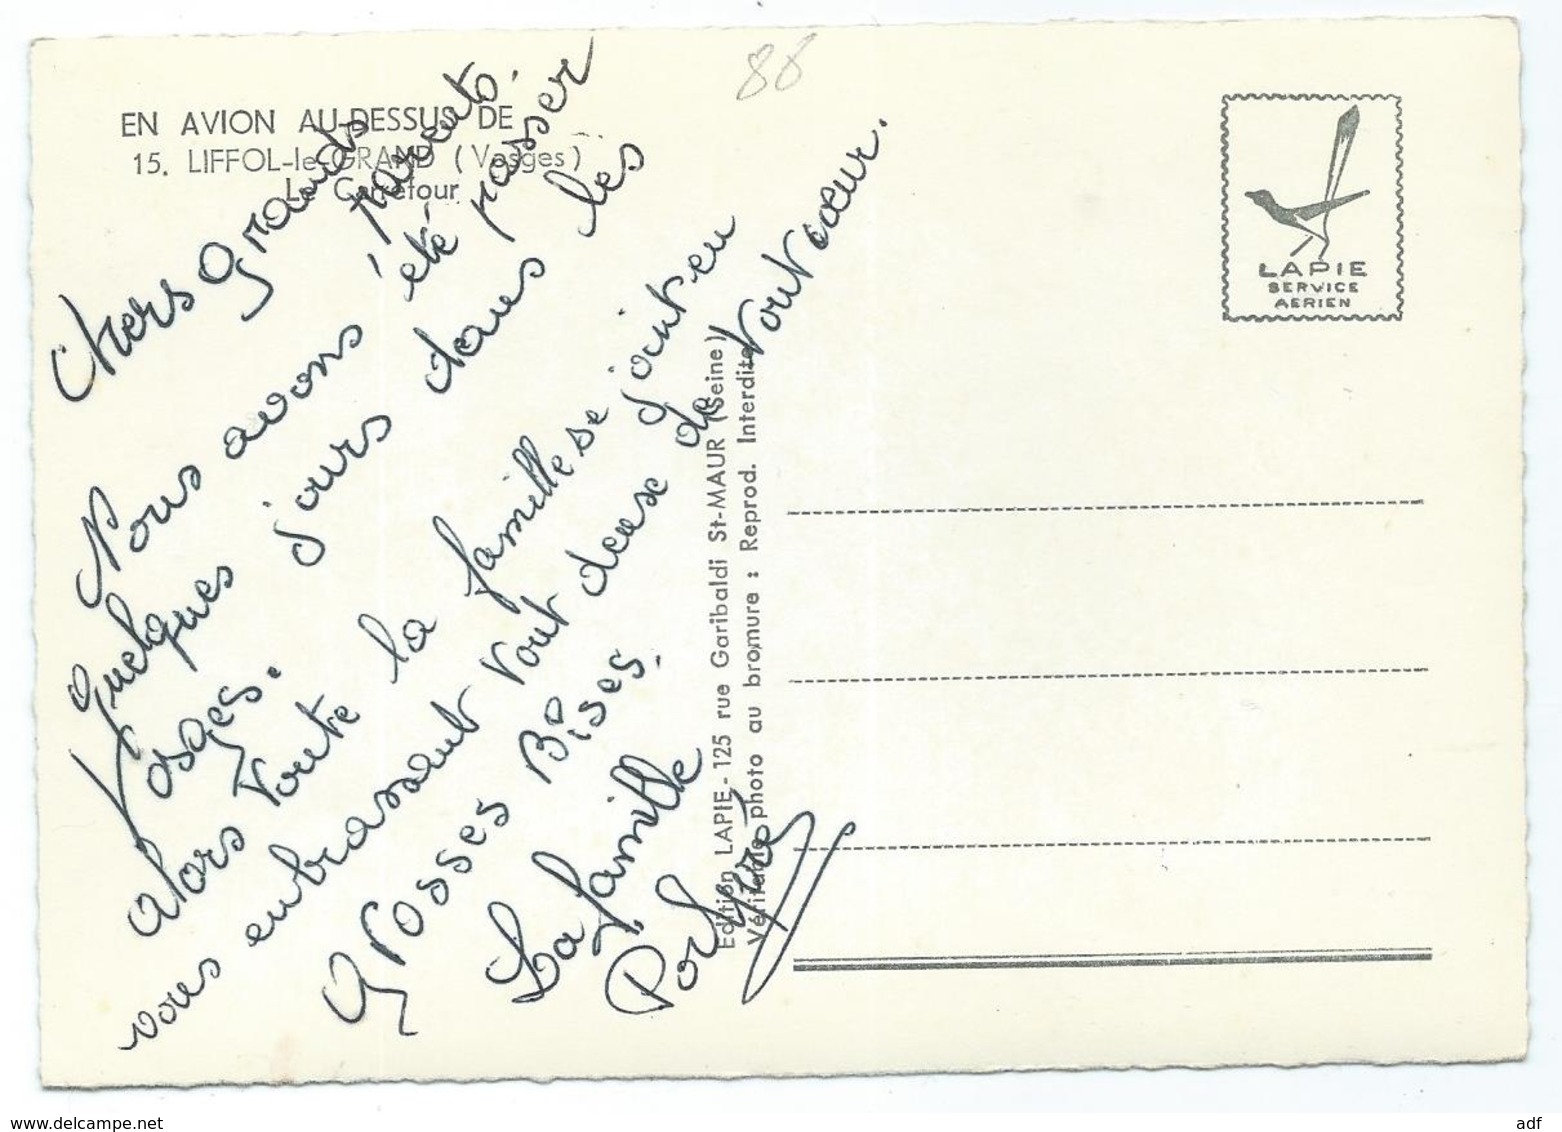 88
EN AVION AU-DESSUS DE
15. LIFFOL-le-GRAND (Vosges)
Le Carrefour
LAPIE
SERVICE
AERIEN
Chers Grands
Parents.
Nous avons été passer
quelques jours dans les
Vosges.
alors toute la famille se joint en
vous embrassant tout deux de tout cœur.
Grosses Bises.
La famille
Edition LAPIE - 125 rue Garibaldi St-MAUR (Seine)
Véritable photo au bromure : Reprod. Interdite
www.delcampe.net
adf